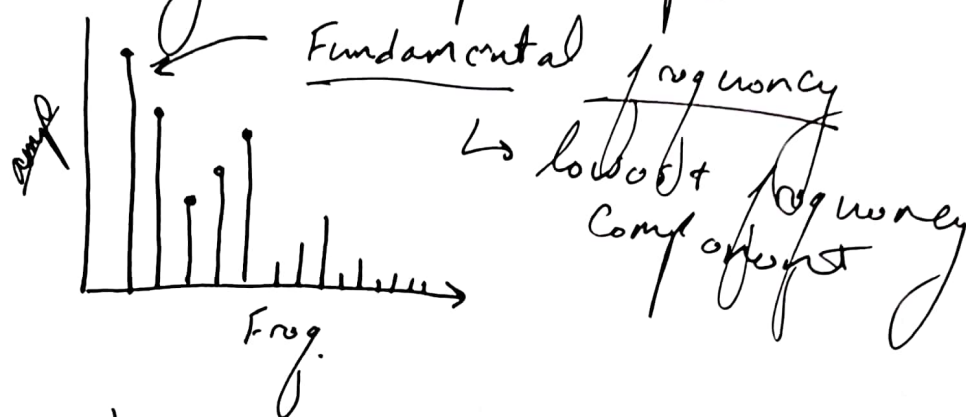 Fundamental frequency
↳ lowest frequency
Component
amp
Freq.